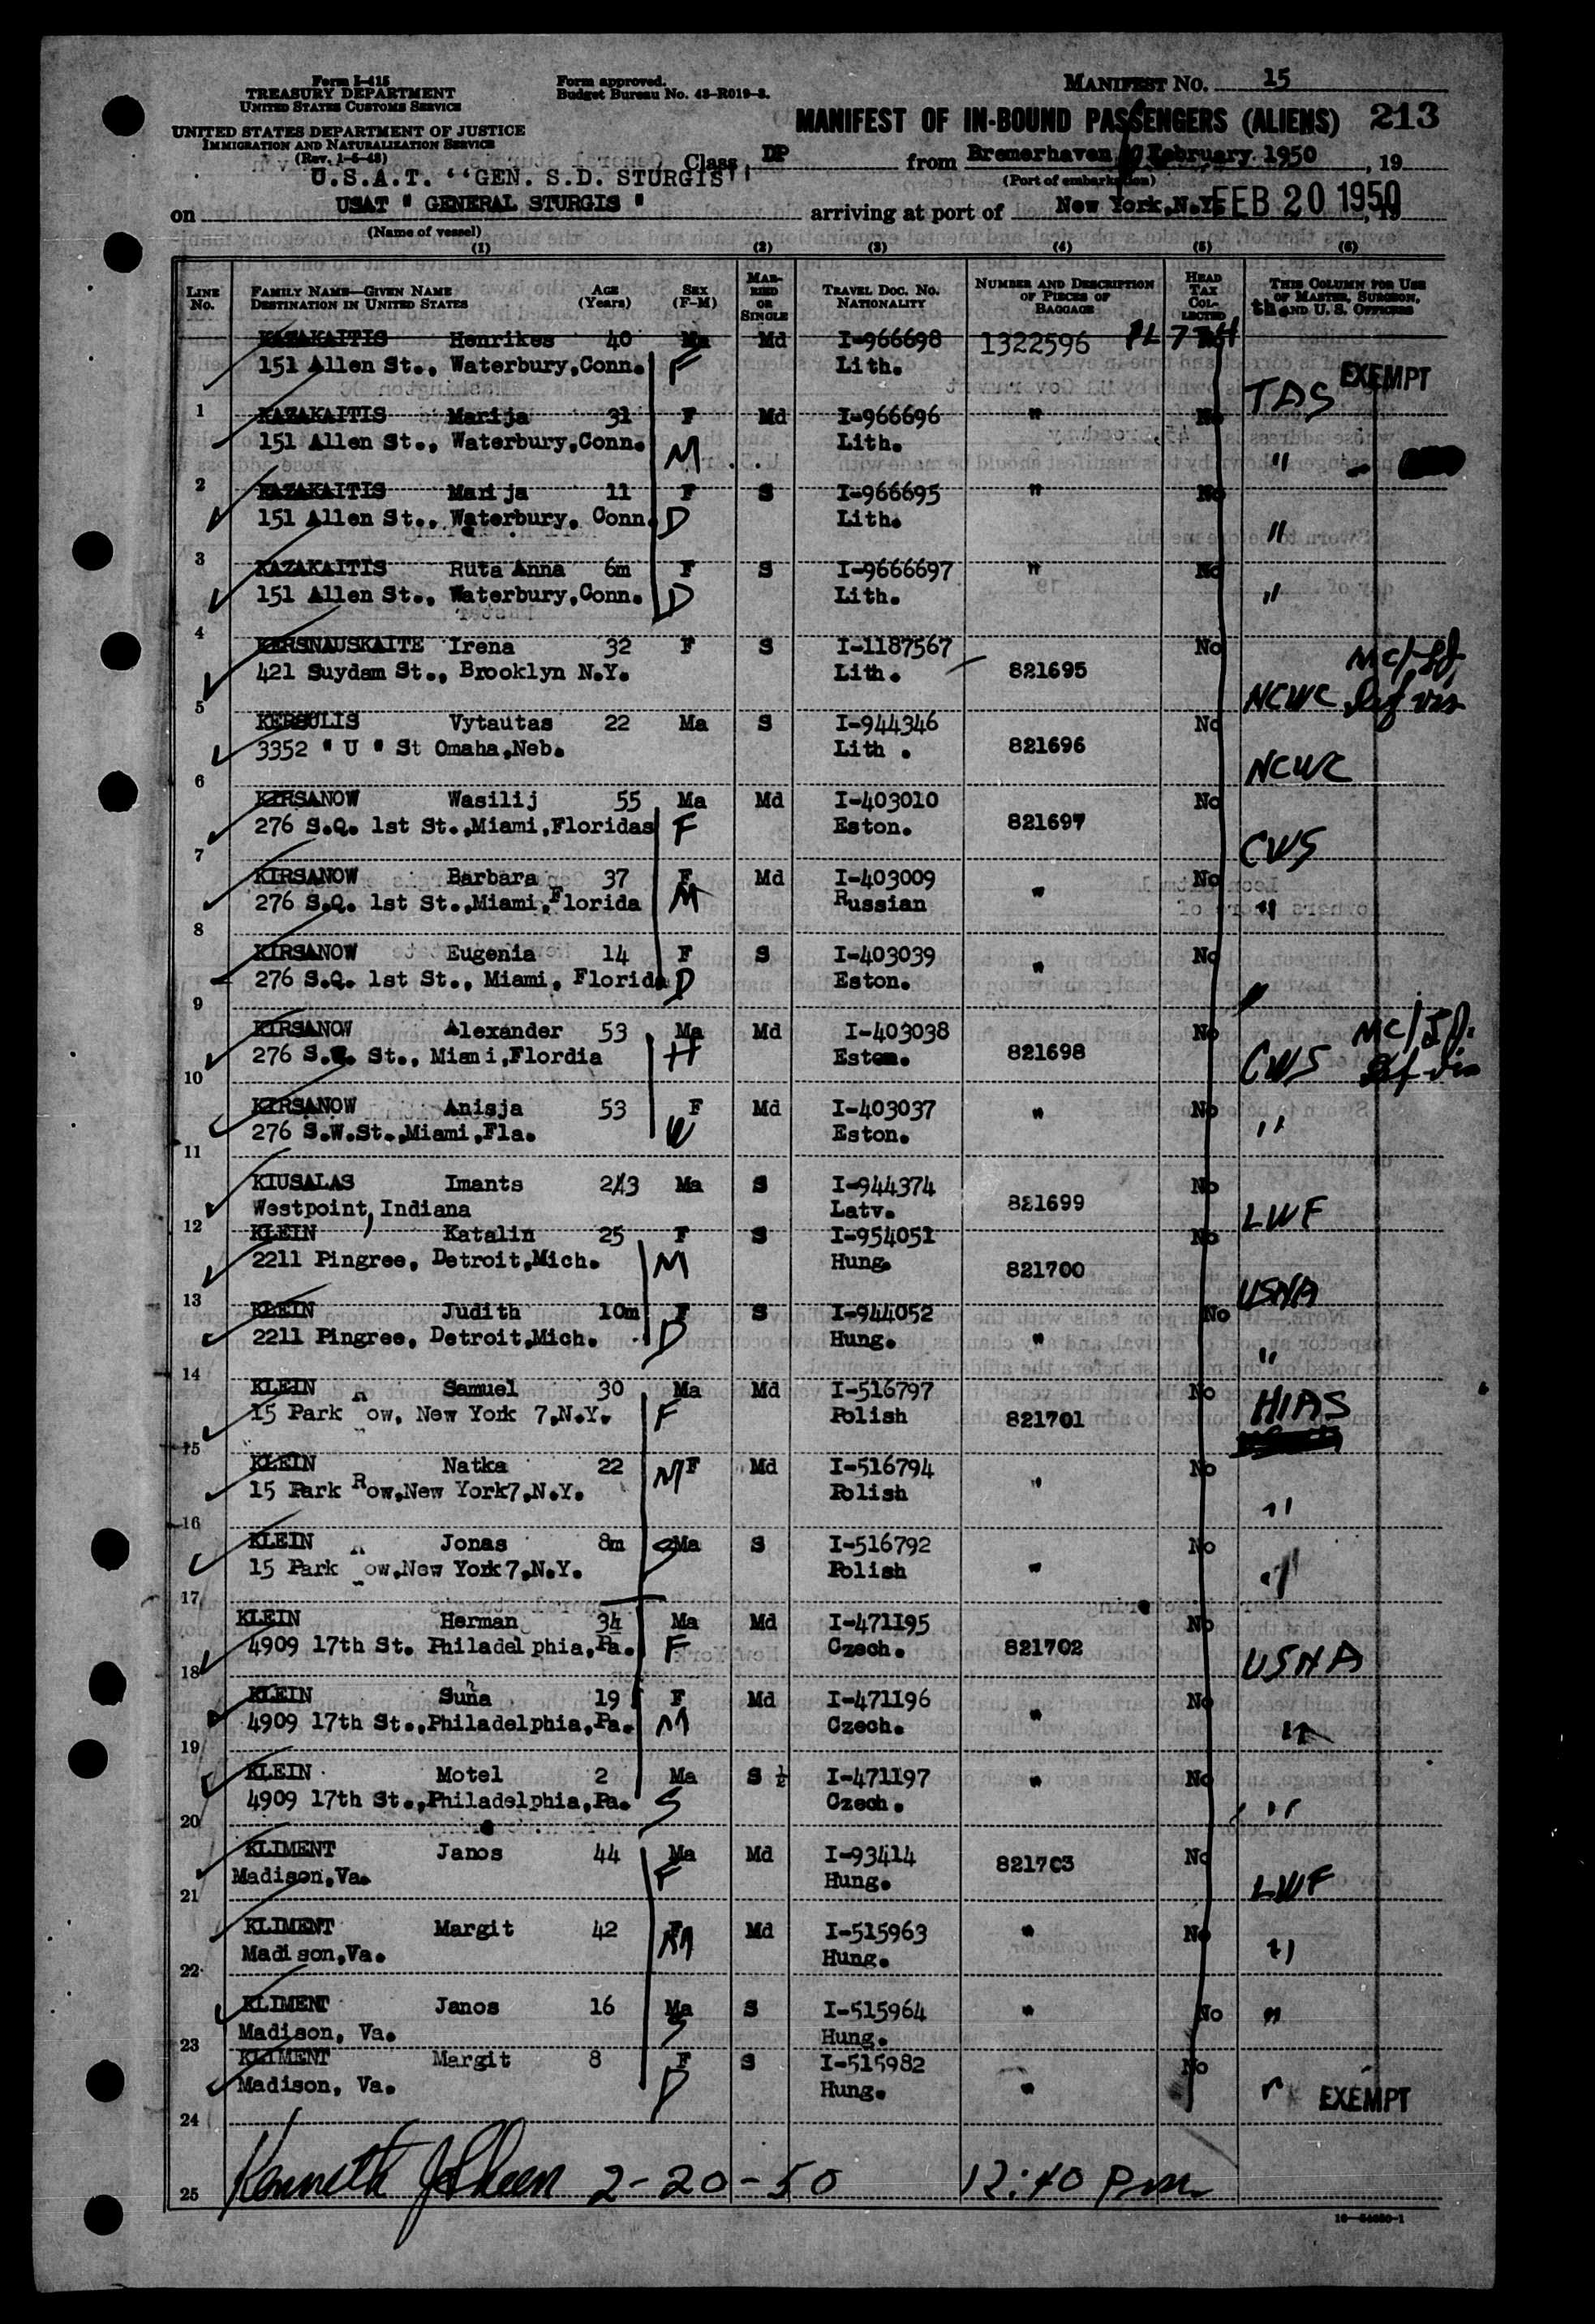 Form I-415
TREASURY DEPARTMENT
UNITED STATES CUSTOMS SERVICE
UNITED STATES DEPARTMENT OF JUSTICE
IMMIGRATION AND NATURALIZATION SERVICE
(Rev. 1-6-48)
Form approved.
Budget Bureau No. 43-R019-3.
MANIFEST No. 15
MANIFEST OF IN-BOUND PASSENGERS (ALIENS) 213
Class DP from Bremerhaven February 1950, 19
(Port of embarkation)
U.S.A.T. "GEN. S.D. STURGIS"
on USAT " GENERAL STURGIS " arriving at port of New York,N.Y. FEB 20 1950
(Name of vessel)
(1) (2) (3) (4) (5) (6)
LINE No. FAMILY NAME—GIVEN NAME DESTINATION IN UNITED STATES AGE (Years) SEX (F-M) MARRIED OR SINGLE TRAVEL DOC. NO. NATIONALITY NUMBER AND DESCRIPTION OF PIECES OF BAGGAGE HEAD TAX COLLECTED THIS COLUMN FOR USE OF MASTER, SURGEON, AND U. S. OFFICERS
KAZAKAITIS Henrikes 40 Ma Md I-966698 1322596
151 Allen St., Waterbury,Conn. F Lith. TAS EXEMPT
1
KAZAKAITIS Marija 31 F Md I-966696 " No
151 Allen St., Waterbury,Conn. M Lith. "
2
KAZAKAITIS Marija 11 F S I-966695 " No
151 Allen St., Waterbury. Conn. D Lith. "
3
KAZAKAITIS Ruta Anna 6m F S I-9666697 " No
151 Allen St., Waterbury,Conn. D Lith. "
4
KERSNAUSKAITE Irena 32 F S I-1187567 821695 No
421 Suydam St., Brooklyn N.Y. Lith. NCWC Def vis
5
KERSULIS Vytautas 22 Ma S I-944346 821696 No
3352 " U " St Omaha,Neb. Lith . NCWC
6
KIRSANOW Wasilij 55 Ma Md I-403010 821697 No
276 S.Q. 1st St.,Miami,Floridas F Eston. CWS
7
KIRSANOW Barbara 37 F Md I-403009 " No
276 S.Q. 1st St.,Miami,Florida M Russian "
8
KIRSANOW Eugenia 14 F S I-403039 " No
276 S.Q. 1st St., Miami, Florida D Eston. "
9
KIRSANOW Alexander 53 Ma Md I-403038 821698 No
276 S.W. St., Miami,Flordia H Eston. CWS Def vis
10
KIRSANOW Anisja 53 F Md I-403037 " No
276 S.W.St.,Miami,Fla. W Eston. "
11
KIUSALAS Imants 23 Ma S I-944374 821699 No
Westpoint, Indiana Latv. LWF
12
KLEIN Katalin 25 F S I-954051 821700 No
2211 Pingree, Detroit,Mich. M Hung. USNA
13
KLEIN Judith 10m F S I-944052 " No
2211 Pingree, Detroit,Mich. D Hung. "
14
KLEIN Samuel 30 Ma Md I-516797 821701 No
15 Park Row, New York 7,N.Y. F Polish HIAS
15
KLEIN Natka 22 F Md I-516794 " No
15 Park Row,New York7,N.Y. M Polish "
16
KLEIN Jonas 8m Ma S I-516792 " No
15 Park Row,New York7,N.Y. S Polish "
17
KLEIN Herman 34 Ma Md I-471195 821702 No
4909 17th St. Philadelphia,Pa. F Czech. USNA
18
KLEIN Suna 19 F Md I-471196 " No
4909 17th St.,Philadelphia,Pa. M Czech. "
19
KLEIN Motel 2 Ma S ½ I-471197 " No
4909 17th St.,Philadelphia,Pa. S Czech. "
20
KLIMENT Janos 44 Ma Md I-93414 821703 No
Madison,Va. F Hung. LWF
21
KLIMENT Margit 42 F Md I-515963 " No
Madison,Va. M Hung. "
22
KLIMENT Janos 16 Ma S I-515964 " No "
Madison, Va. S Hung.
23
KLIMENT Margit 8 F S I-515982 " No
Madison, Va. D Hung. " EXEMPT
24
Kenneth 2-20-50 12:40 Pm
25